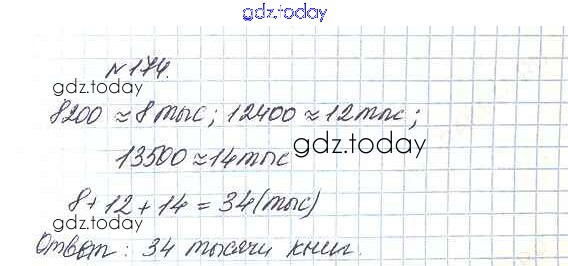 gdz.today
№174.
gdz.today
8200 ≈ 8 тыс; 12400 ≈ 12 тыс;
gdz.today
13500 ≈ 14 тыс
8 + 12 + 14 = 34 (тыс)
gdz.today
Ответ: 34 тысячи книг.
gdz.today